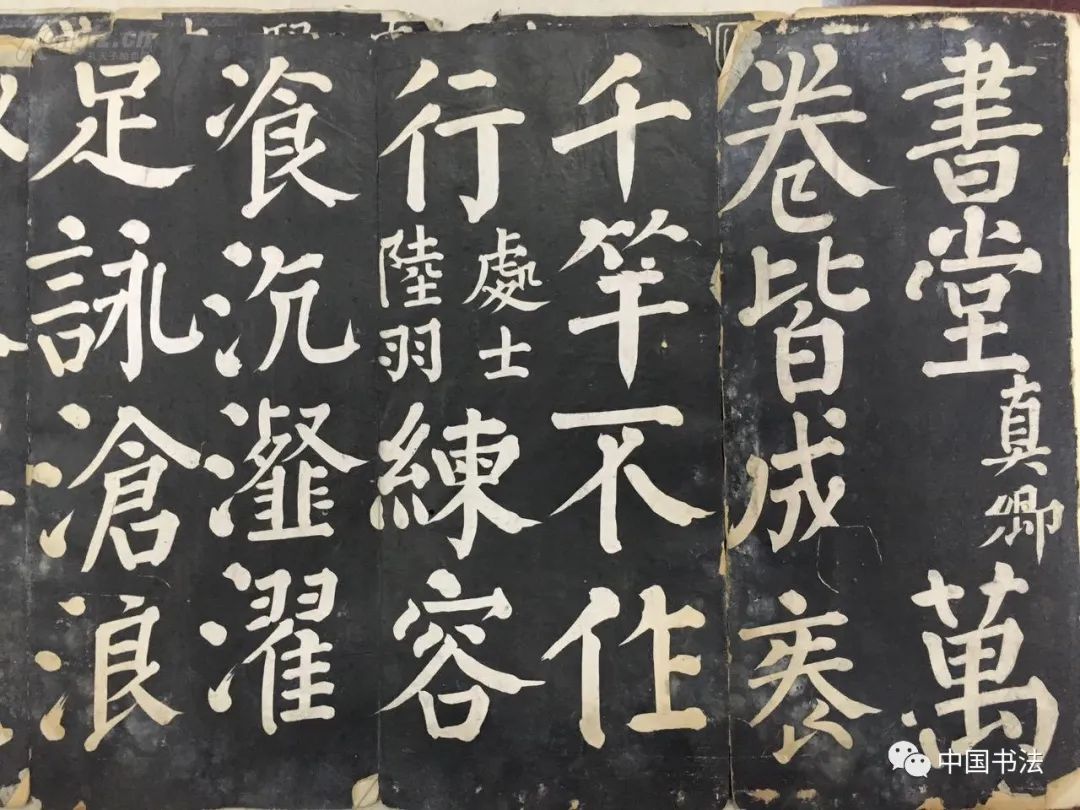 書堂真卿萬
卷皆成袠
千竿不作
行處士陸羽練容
飡沆瀣濯
足詠滄浪
中国书法